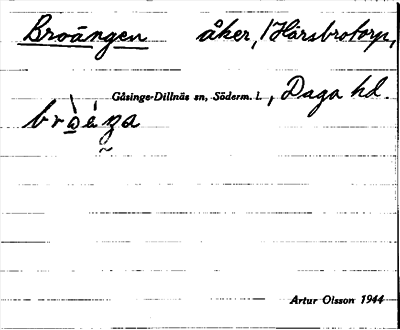 Broängen åker, / Härsbrotorp,
Gåsinge-Dillnäs sn, Söderm. l., Daga hd.
Artur Olsson 1944